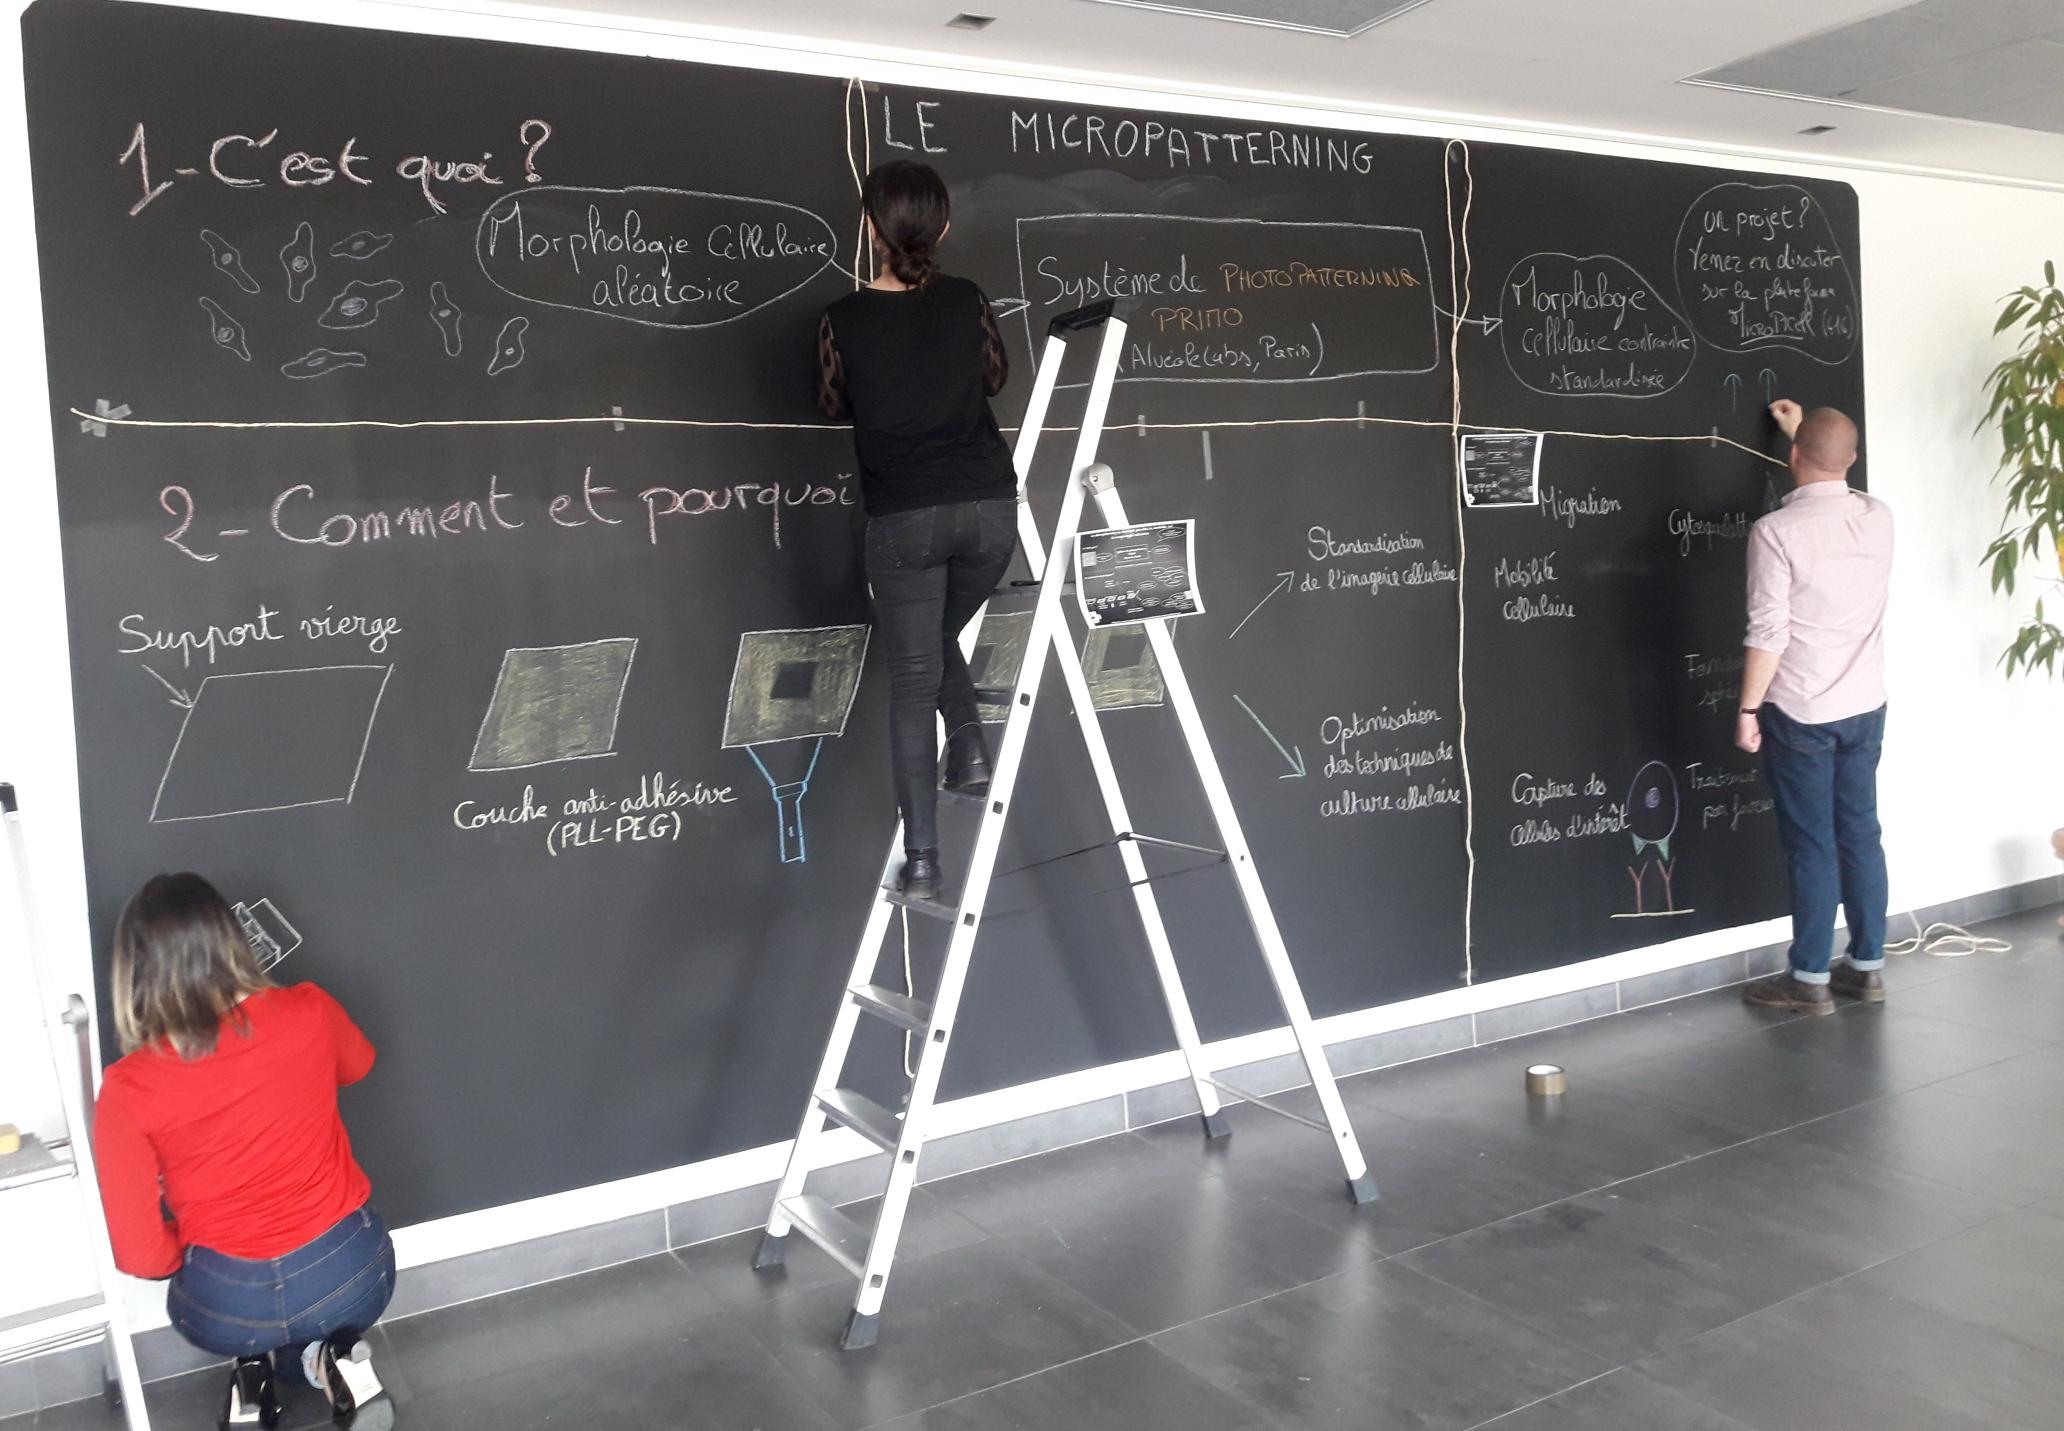 LE MICROPATTERNING
1-C'est quoi ?
Morphologie Cellulaire
aléatoire
Système de PHOTOPATTERNING
PRIMO
(Alvéole Labs, Paris)
Morphologie
Cellulaire contrainte
standardisée
Un projet ?
Venez en discuter
sur la plateforme
MicroPICell
2- Comment et pourquoi
Support vierge
Couche anti-adhésive
(PLL-PEG)
Standardisation
de l'imagerie cellulaire
Optimisation
des techniques de
culture cellulaire
Migration
Mobilité
cellulaire
Capture des
cellules d'intérêt
Traitement